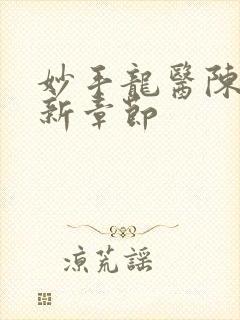 妙手龍醫陳
新章節
涼荒謠